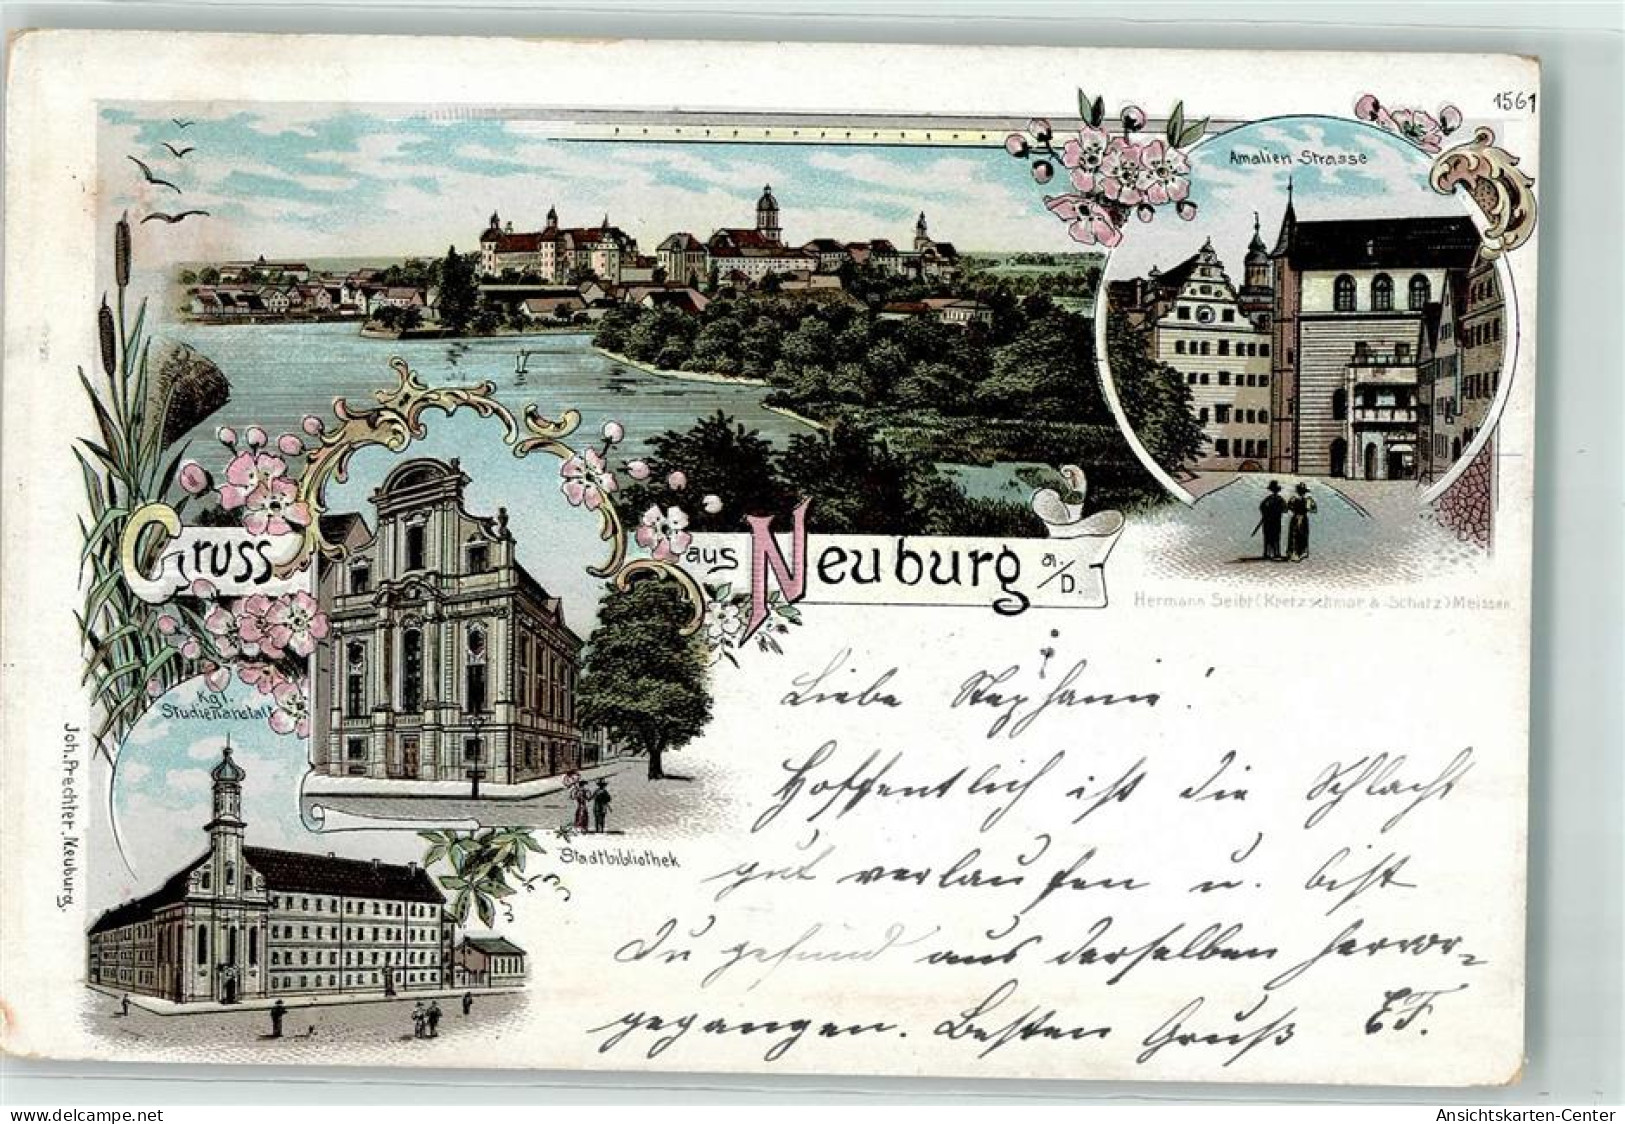 1561
Amalien Strasse
Gruss aus Neuburg a./D.
Hermann Seibt (Kretzschmar & Schatz) Meissen.
Kgl.
Studienanstalt
Joh. Prechter, Neuburg.
Stadtbibliothek
Liebe Stephanie!
Hoffentlich ist die Schlacht
gut verlaufen u. bist
Du gesund aus derselben hervor-
gegangen. Besten Gruß EF.
Ansichtskarten-Center